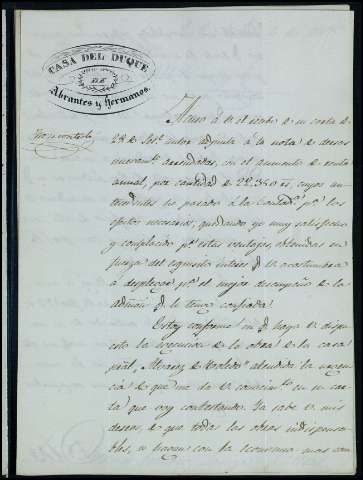 CASA DEL DUQUE
DE
Abrantes y Hermanos.
Acuso á V. el recibo de su carta de
28 de Set.e adjunta á la nota de
arrendadas, con el aumento de renta
anual, por cantidad de 22.350 rs, cuyos
he pasado á la Contad.a p.a los
efectos necesarios, quedando yo muy satisfecho
y complacido p.r estas ventajas, obtenidas en
fuerza del esquisito interes q. V. acostumbra
á desplegar p.a el mejor desempeño de la
admon q. le tengo confiada.
Estoy conforme en q. haya V. dispu
esto la egecucion de las obras de la casa
pral, de atendida la urgen
cia de que me da V. conocim.to en su car
ta que voy contestando. Ya sabe V. mis
deseos, de que todas las obras indispensa
bles, se hagan con la economia mas com